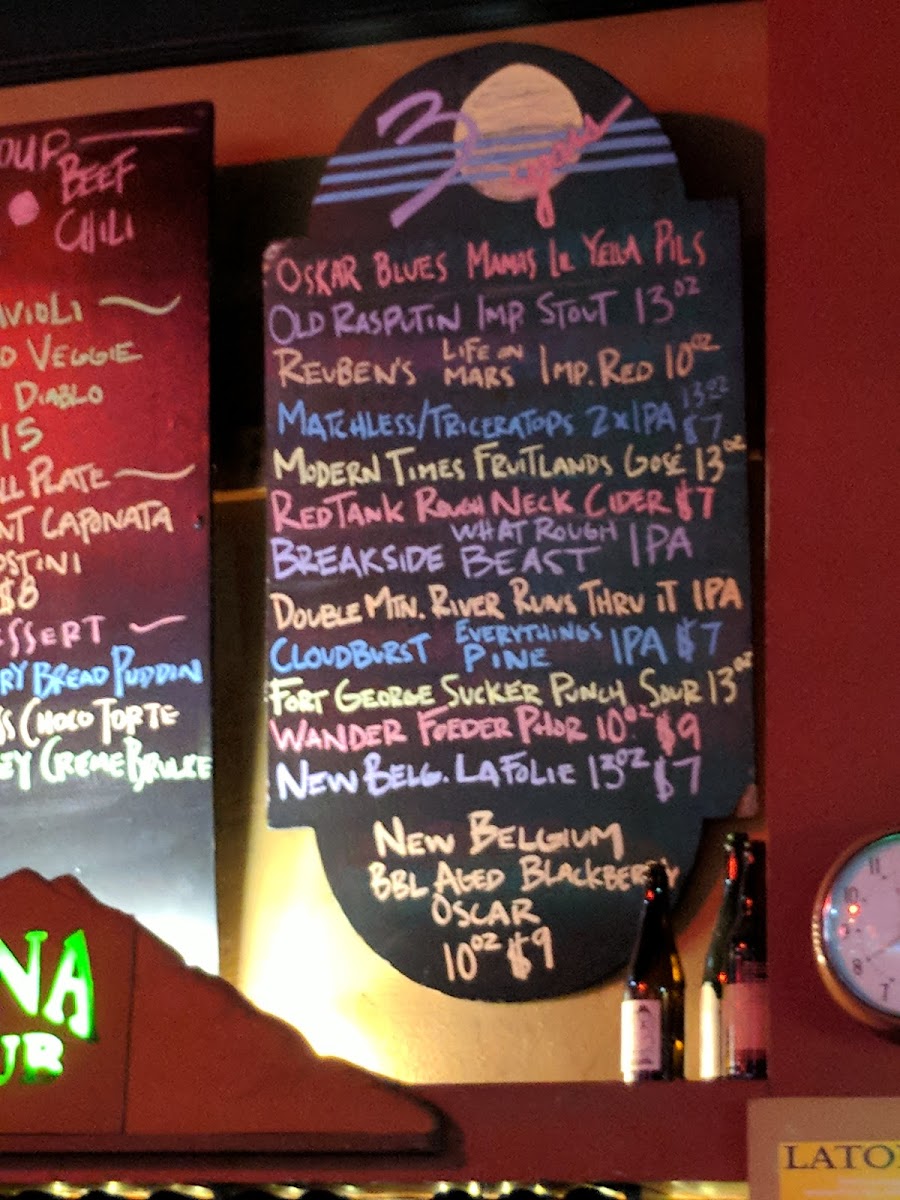 OUP
BEEF
CHILI
VIOLI
VEGGIE
DIABLO
15
LL PLATE
NT CAPONATA
OSTINI
$8
ESSERT
RY BREAD PUDDIN
S CHOCO TORTE
EY CREME BRULEE
NA
UB
3 years
OSKAR BLUES MAMAS LIL YELLA PILS
OLD RASPUTIN IMP. STOUT 13OZ
REUBEN'S LIFE ON MARS IMP. RED 10OZ
MATCHLESS/TRICERATOPS 2xIPA 13OZ $7
MODERN TIMES FRUITLANDS GOSÉ 13OZ
RED TANK ROUGH NECK CIDER $7
BREAKSIDE WHAT ROUGH BEAST IPA
DOUBLE MTN. RIVER RUNS THRU IT IPA
CLOUDBURST EVERYTHINGS PINE IPA $7
FORT GEORGE SUCKER PUNCH SOUR 13OZ
WANDER FOEDER PHOR 10OZ $9
NEW BELG. LA FOLIE 13OZ $7
NEW BELGIUM
BBL AGED BLACKBERRY
OSCAR
10OZ $9
11
10
8
7
LATO